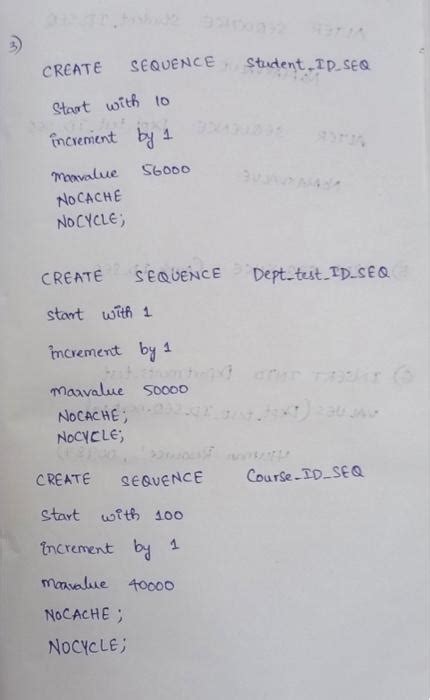 3)
CREATE SEQUENCE Student_ID_SEQ
Start with 10
increment by 1
maxvalue 56000
NOCACHE
NOCYCLE;
CREATE SEQUENCE Dept_test_ID_SEQ
start with 1
increment by 1
maxvalue 50000
NOCACHE;
NOCYCLE;
CREATE SEQUENCE Course_ID_SEQ
Start with 100
increment by 1
maxvalue 40000
NOCACHE;
NOCYCLE;